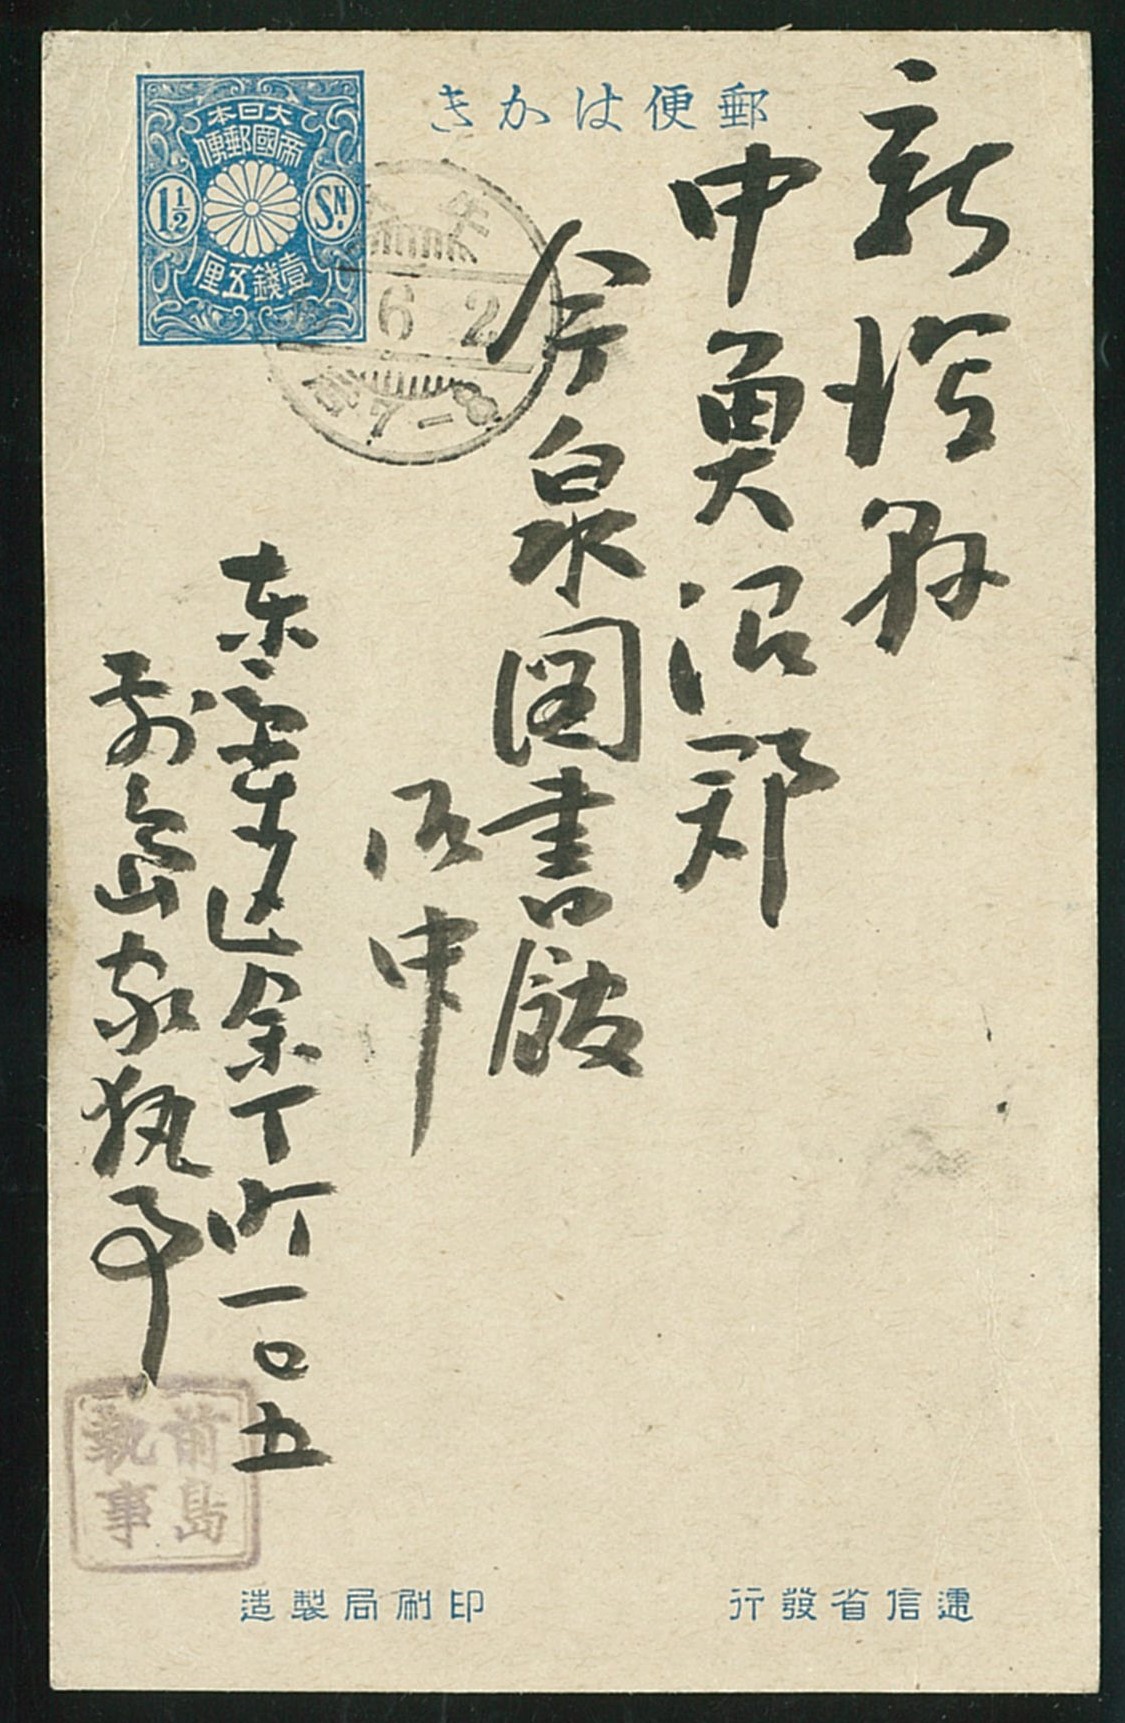 郵便はかき
大日本
帝國郵便
1½
SN.
壹錢五厘
6 2
前7-8
新潟縣
中魚沼郡
今泉図書館
御中
東京牛込区余丁町一〇五
前島家執事
前島
執事
遞信省發行
印刷局製造